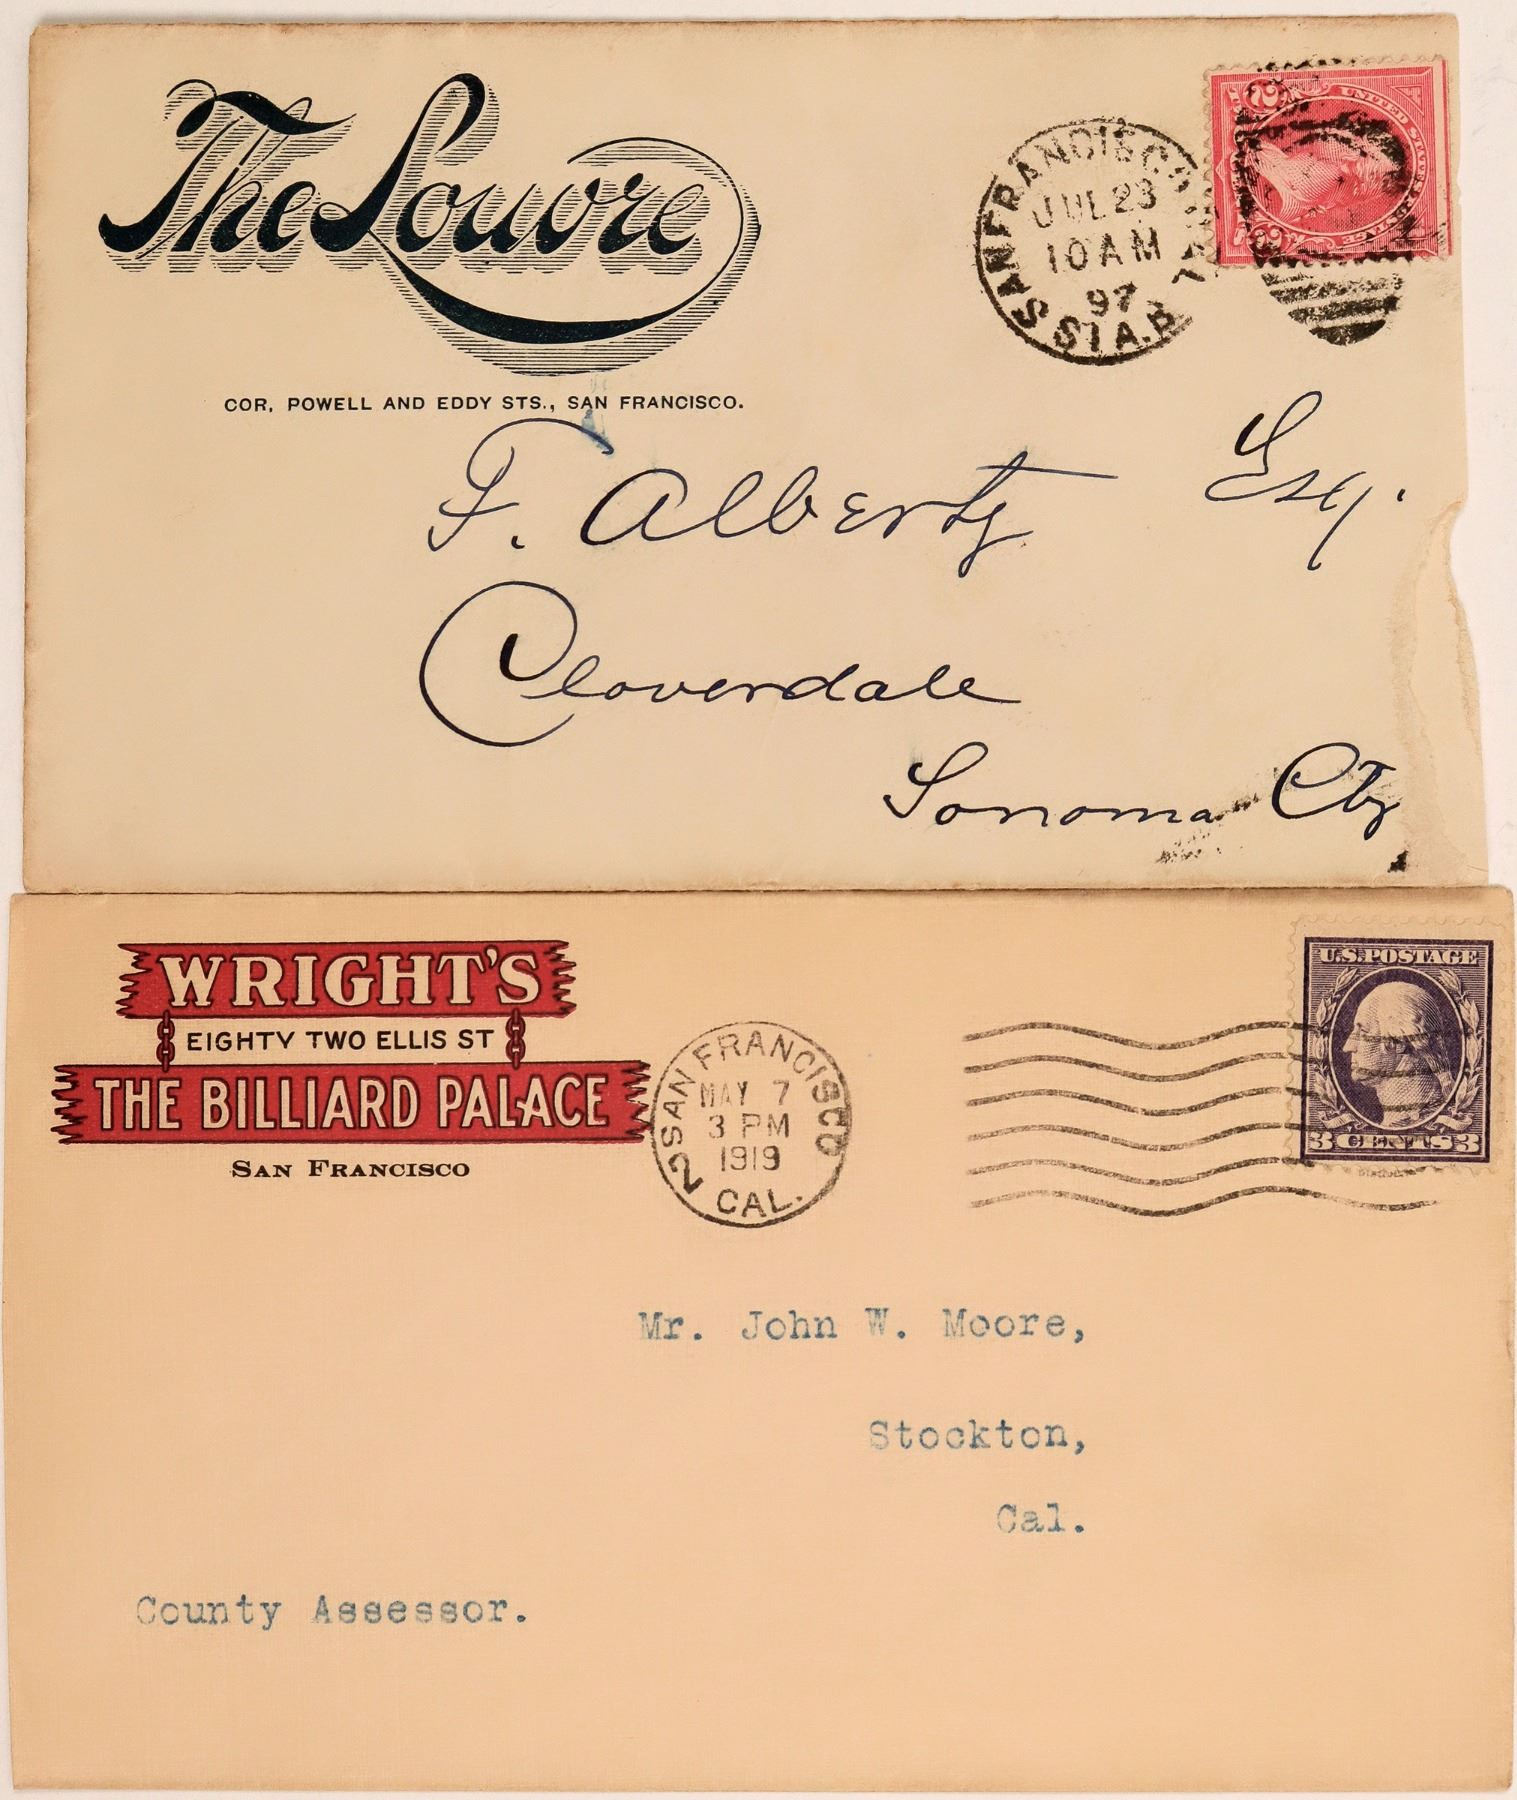 The Louvre
COR. POWELL AND EDDY STS., SAN FRANCISCO.
SAN FRANCISCO
JUL 23
10 AM
97
STA. B
UNITED STATES POSTAGE
2 2
F. Alberty Esq.
Cloverdale
Sonoma Cty
WRIGHT'S
EIGHTY TWO ELLIS ST
THE BILLIARD PALACE
SAN FRANCISCO
SAN FRANCISCO
MAY 7
3 PM
1919
2
CAL.
U.S. POSTAGE
3 CENTS 3
Mr. John W. Moore,
Stockton,
Cal.
County Assessor.